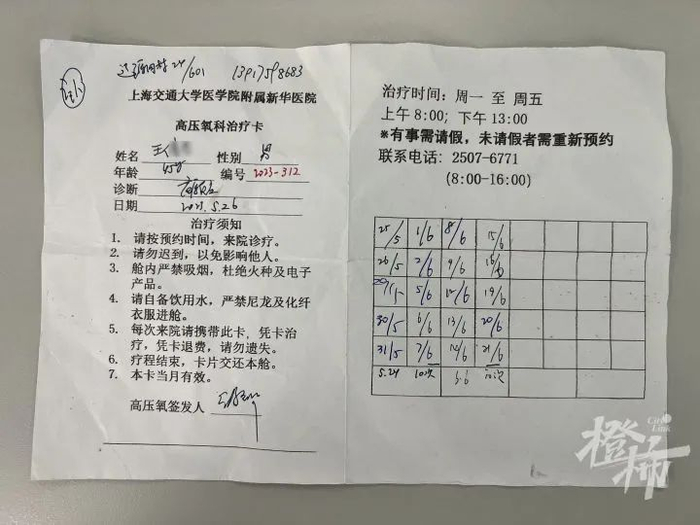 24/601 13917598683
上海交通大学医学院附属新华医院
高压氧科治疗卡
姓名 王 性别 男
年龄 45岁 编号 2023-312
诊断
日期 2023.5.26
治疗须知
1. 请按预约时间，来院诊疗。
2. 请勿迟到，以免影响他人。
3. 舱内严禁吸烟，杜绝火种及电子
产品。
4. 请自备饮用水，严禁尼龙及化纤
衣服进舱。
5. 每次来院请携带此卡，凭卡治
疗，凭卡退费，请勿遗失。
6. 疗程结束，卡片交还本舱。
7. 本卡当月有效。
高压氧签发人
治疗时间：周一 至 周五
上午 8:00; 下午 13:00
※有事需请假，未请假者需重新预约
联系电话：2507-6771
(8:00-16:00)
25/5 1/6 8/6 15/6
26/5 2/6 9/6 16/6
5/6 12/6 19/6
30/5 6/6 13/6 20/6
31/5 7/6 14/6 21/6
10次
橙柿
City Link